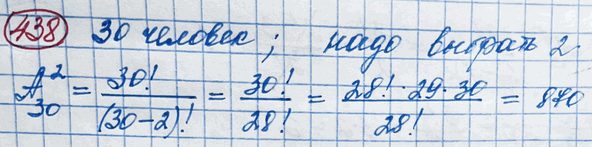 438 30 человек; надо выбрать 2
A₃₀² = 30!/(30-2)! = 30!/28! = 28!·29·30/28! = 870